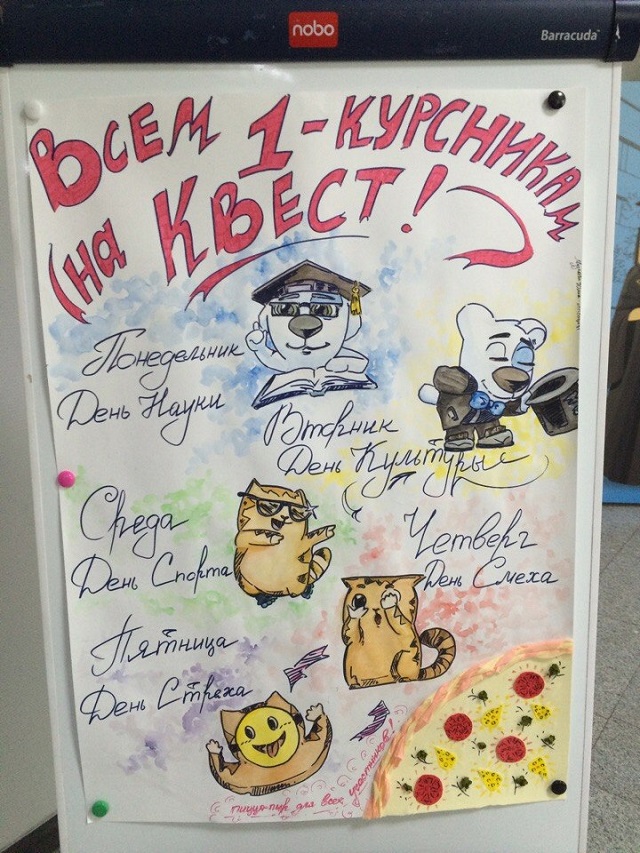 nobo
Barracuda
Всем 1-курсникам
на Квест!
Понедельник
День Науки
Вторник
День Культуры
Среда
День Спорта
Четверг
День Смеха
Пятница
День Страха
пицца-пир для всех участников!